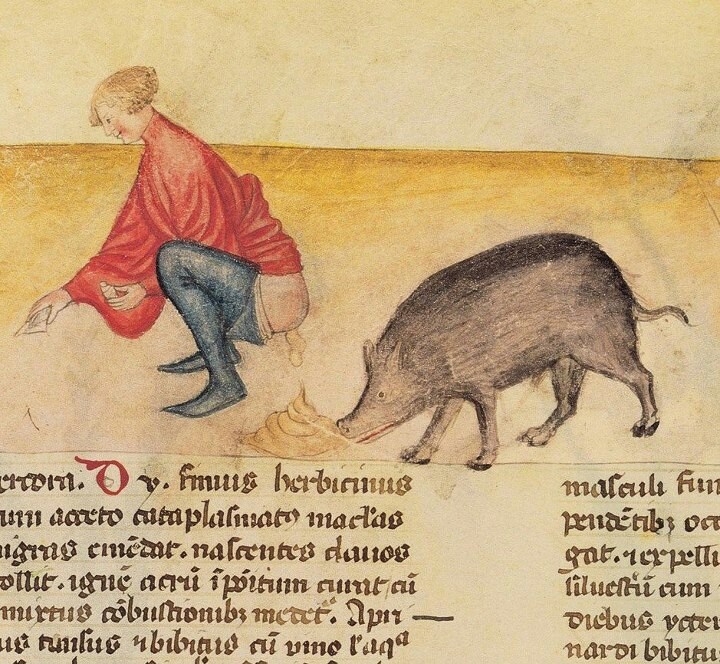 ercora. Dy. fimus herbicinus
um aceto cataplasmatꝰ mac̄las
nigras emēdat. nascentes clauos
ollit. ignē acrū īpōitum curat cū
mixtus cōbustionibꝫ medet᷑. Apri
us tunsus ⁊ bibitus cū uino l'aqᵃ
masculi fum
pendētibꝫ oc
gat. ⁊ expelli
siluestrū cum
diebus ycter
nardi bibitu